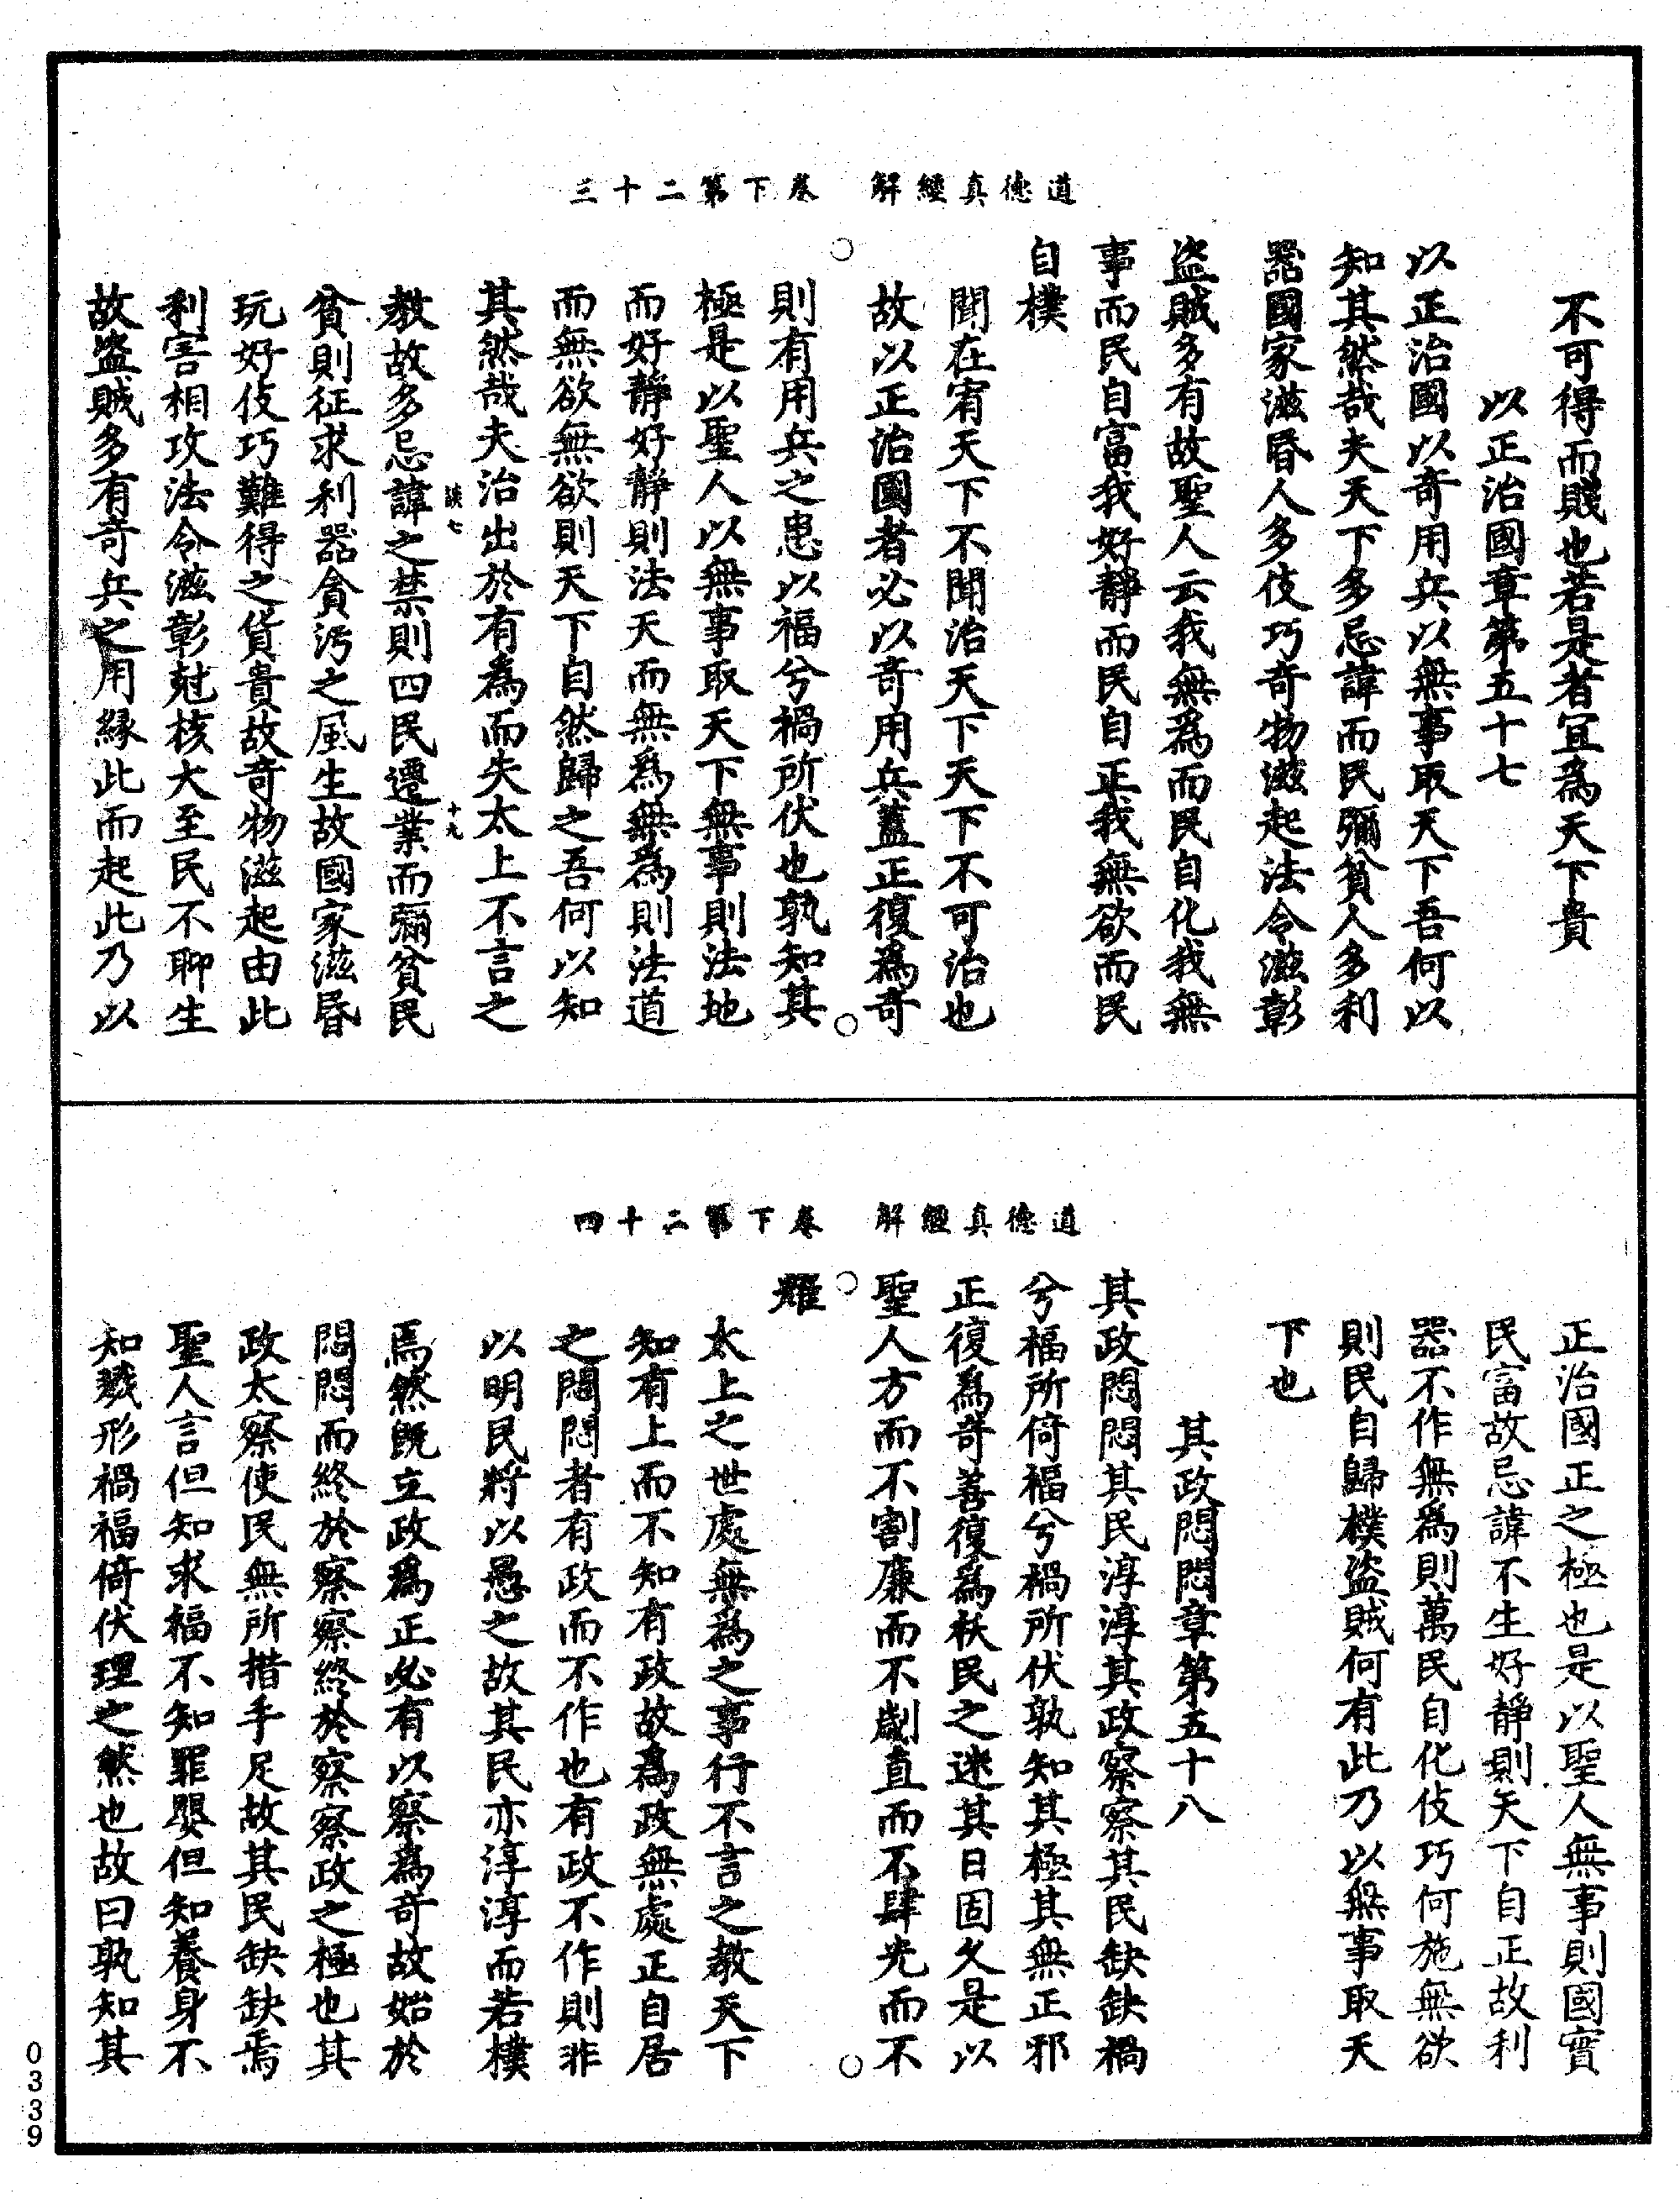 道德真經解　卷下第二十三
不可得而賤也若是者宜為天下貴
以正治國章第五十七
以正治國以奇用兵以無事取天下吾何以
知其然哉夫天下多忌諱而民彌貧人多利
器國家滋昬人多伎巧奇物滋起法令滋彰
盜賊多有故聖人云我無為而民自化我無
事而民自富我好靜而民自正我無欲而民
自樸
聞在宥天下不聞治天下天下不可治也
故以正治國者必以奇用兵蓋正復為奇
則有用兵之患以福兮禍所伏也孰知其
極是以聖人以無事取天下無事則法地
而好靜好靜則法天而無為無為則法道
而無欲無欲則天下自然歸之吾何以知
其然哉夫治出於有為而失太上不言之
談七　十九
教故多忌諱之禁則四民遷業而彌貧民
貧則征求利器貪污之風生故國家滋昬
玩好伎巧難得之貨貴故奇物滋起由此
利害相攻法令滋彰尅核大至民不聊生
故盜賊多有奇兵之用緣此而起此乃以
道德真經解　卷下第二十四
正治國正之極也是以聖人無事則國實
民富故忌諱不生好靜則天下自正故利
器不作無為則萬民自化伎巧何施無欲
則民自歸樸盜賊何有此乃以無事取天
下也
其政悶悶章第五十八
其政悶悶其民淳淳其政察察其民缺缺禍
兮福所倚福兮禍所伏孰知其極其無正邪
正復為奇善復為祅民之迷其日固久是以
聖人方而不割廉而不劌直而不肆光而不
耀
太上之世處無為之事行不言之教天下
知有上而不知有政故為政無處正自居
之悶悶者有政而不作也有政不作則非
以明民將以愚之故其民亦淳淳而若樸
焉然既立政為正必有以察為奇故始於
悶悶而終於察察終於察察政之極也其
政太察使民無所措手足故其民缺缺焉
聖人言但知求福不知罪嬰但知養身不
知戮形禍福倚伏理之然也故曰孰知其
0339